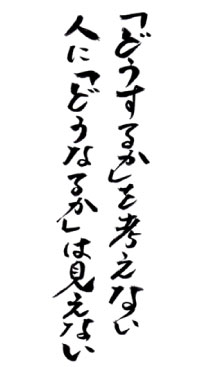 「どうするか」を考えない
人に「どうなるか」は見えない